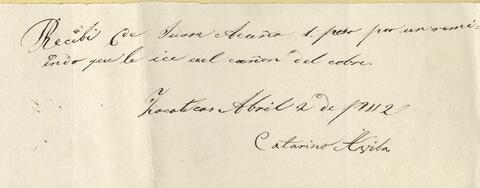 Recibí de Juan Acuña 1. peso por un remi=
endo que le ice en el cañon del cobre.
Zacatecas Abril 2 de 1912
Catarino